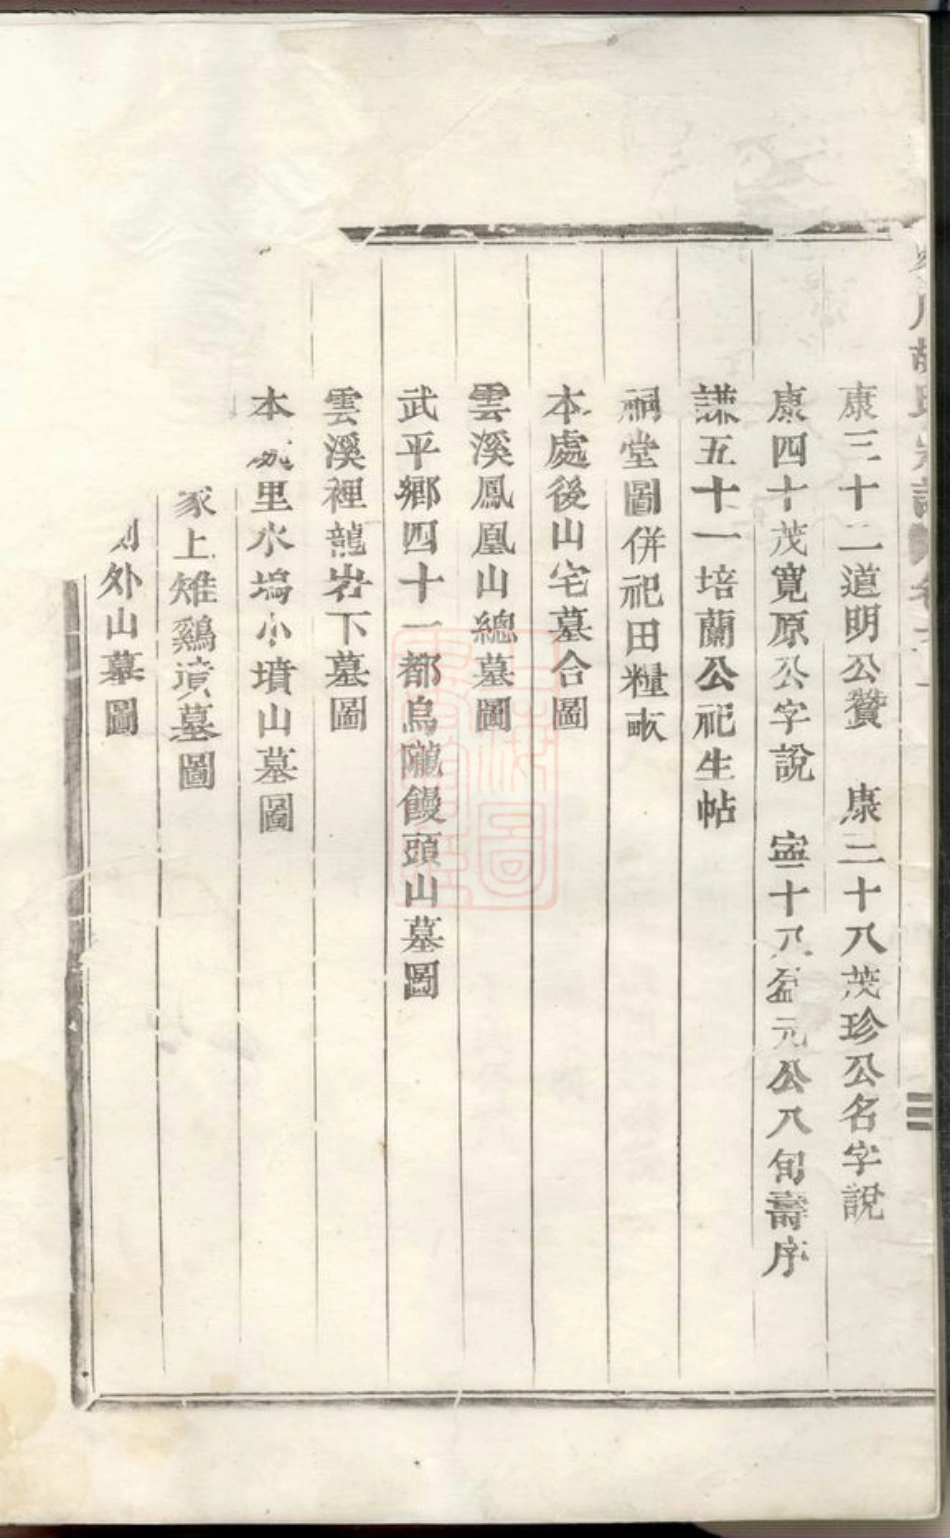 胡氏宗譜
康三十二道明公贊　康三十八茂珍公名字說
康四十茂寬原公字說　寍十八盈元公八旬壽序
謙五十一培蘭公祀生帖
祠堂圖併祀田糧畝
本處後山宅墓合圖
雲溪鳳凰山總墓圖
武平鄉四十一都烏隴饅頭山墓圖
雲溪裡龍岩下墓圖
本 里水塢小墳山墓圖
上雉鷄墳墓圖
外山墓圖